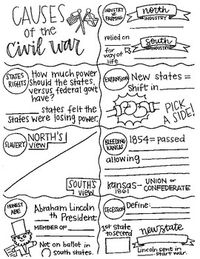 CAUSES
of the
civil war
INDUSTRY
vs
FARMING
north
INDUSTRY
relied on
for
way of
life
south
INDUSTRY
STATES
RIGHTS
How much power
should the states,
versus federal govt
have?
states felt the
states were losing power.
EXPANSION
New states =
shift in
PICK
A SIDE!
SLAVERY
NORTH'S
VIEW
SOUTH'S
VIEW
BLEEDING
KANSAS
1854 = passed
allowing
kansas-
1861
UNION or
CONFEDERATE
HONEST
ABE
Abraham Lincoln
th President
MEMBER OF
Not on ballot in
south states.
SECESSION
Define:
1st state
to secede
new state
Lincoln sent in
start war.